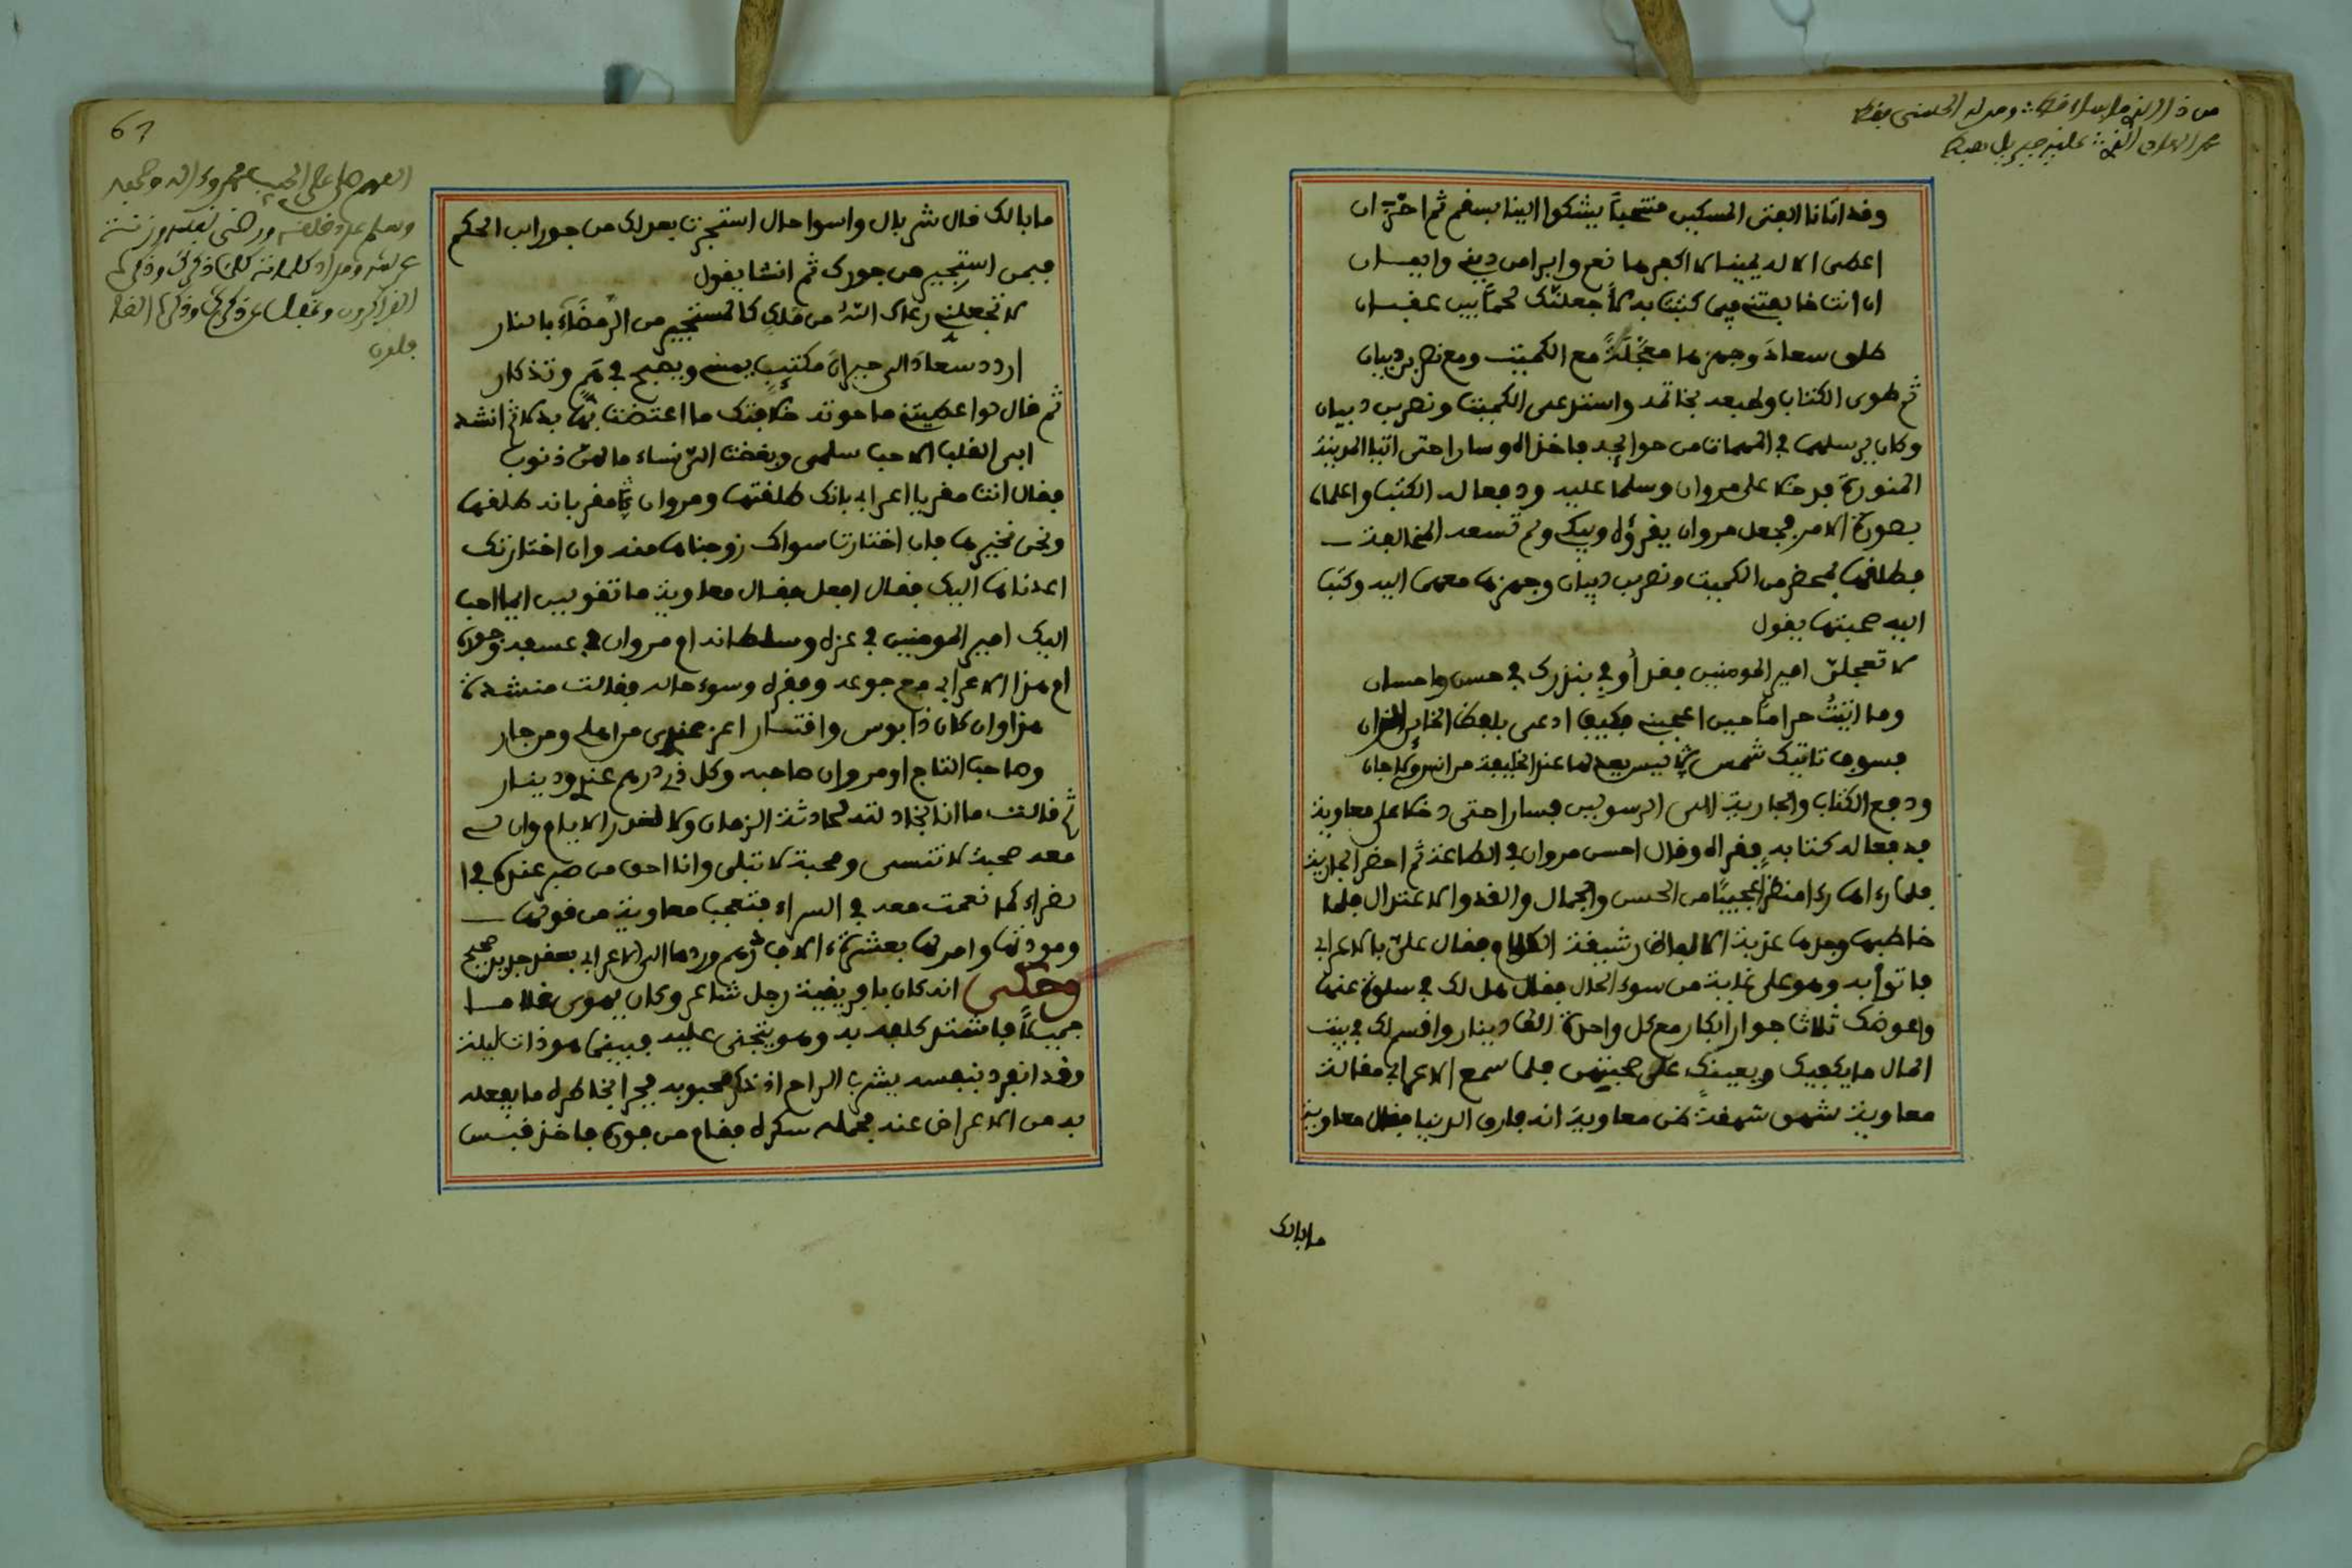 وقد اتانا الفتى المسكين منتحبا يشكوا الينا بسقم ثم احزان
اعطى الاله يمينا لا اكفرها نعم وابرا من ديني وايمان
ان انت خالفتني فيما كتبت به لاجعلنك لحما بين عقبان
طلق سعاد وجهزها معجلة مع الكميت ومع نصر بن ديبان
ثم طوى الكتاب وطبعه بخاتمه واستدعى الكميت ونصر بن ديبان
وكان يرسلهما في المهمات من حوائجه فاخذاه وسارا حتى اتيا المدينة
المنورة فدخلا على مروان وسلما عليه ودفعا له الكتب واعلماه
بصورة الامر فجعل مروان يقرؤه ويبكي ولم تسعه المخالفة
فطلقها بمحضر من الكميت ونصر بن ديبان وجهزها معهما اليه وكتب
اليه صحبتها يقول
لا تعجلن امير المومنين فقد أوفي بنذرك في حسن واحسان
وما اتيت حراما حين اعجبني فكيف ادعى بلفظ الخاين الزان
فسوف تاتيك شمس ليس يعدلها عند الخليفة من انس وكل جان
ودفع الكتاب والجارية الى الرسولين فسارا حتى دخلا على معاوية
فدفعا له كتابه فقراه وقال احسن مروان في الطاعة ثم احضر الجارية
فلما رءاها رءا منظرا عجيبا من الحسن والجمال والقد والاعتدال فلما
خاطبها وجدها عذبة الالفاظ رشيقة الكلام وفقال علي بالاعرابي
فاتوا به وهو على غاية من سوء الحال فقال هل لك في سلوة عنها
واعوضك ثلاثا جوار ابكار مع كل واحدة الف دينار واقسم لك في بيت
المال ما يكفيك ويعينك على صحبتهن فلما سمع الاعرابي مقالة
معاوية شهق شهقة ظن معاوية انه فارق الدنيا فقال معاوية
مابالك
مابالك قال شر بال واسوا حال استجرت بعدلك من جور ابن الحكم
فبمن استجير من جورك ثم انشا يقول
لا تجعلني رعاك الله من ملك كالمستجير من الرمضاء بالنار
اردد سعاد الى حيران مكتيب يمسي ويصبح في هم وتذكار
ثم قال لو اعطيتني ما حوته خلافتك ما اعتضت بها بدلا ثم انشد
ابى القلب الا حب سلمى وبغضت الي نساء مالهن ذنوب
فقال انت مقر يا اعرابي بانك طلقتها ومروان مقر بانه طلقها
ونحن نخيرها فان اختارت سواك زوجناها منه وان اختارتك
اعدناها اليك فقال افعل فقال معاوية ما تقولين ايما احب
اليك امير المومنين في عزه وسلطانه ام مروان في عسفه وجوره
ام هذا الاعرابي مع جوعه وفقره وسوء حاله فقالت منشدة
هذا وان كان ذا بوس واقتار اعز عندي من اهلي ومن جار
وصاحب التاج او مروان صاحبه وكل ذي درهم عندي ودينار
ثم قالت ما انا بخاذلته لحادثة الزمان ولا لغدر الايام وان لي
معه صحبة لا تنسى ومحبة لا تبلى وانا احق من صبر عنده في ا
لضراء كما نعمت معه في السراء فتعجب معاوية من قولها
ومودتها وامر لها بعشرة ءالاف درهم وردها الى الاعرابي بعقد جديد صحيح
وحكي انه كان بافريقية رجل شاعر وكان يهوى غلاما
جميلا فاشتد كلفه به وهو يتجنى عليه فبينما هو ذات ليلة
وقد انفرد بنفسه يشرب الراح اذ ذكر محبوبه فجرا بخاطره ما يفعله
به من الاعراض عنه فحمله سكره فقام من فوره فاخذ قبس
67